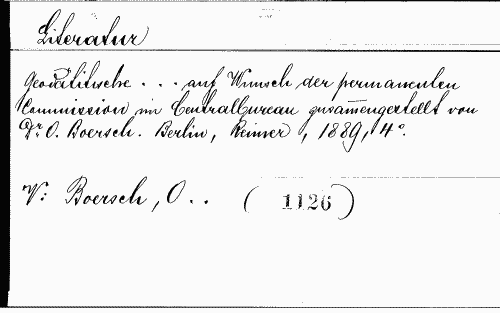 Literatur
Geodätische . . . auf Wunsch der permanenten
Commission im Centralbureau zusammengestellt von
Dr. O. Boersch. Berlin, Reimer, 1889, 4°.
V: Boersch, O . . ( 1126 )